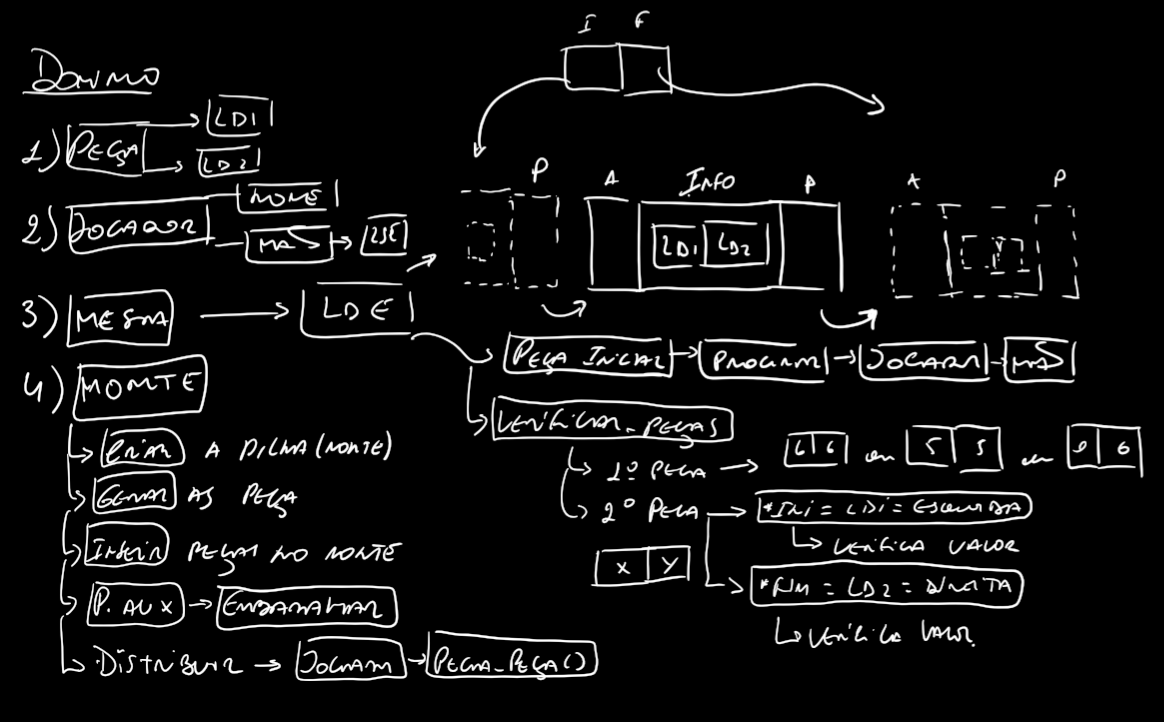 DOMINO
1) PEÇA
LD1
LD2
2) JOGADOR
NOME
MÃO
LSE
3) MESMA
LDE
4) MONTE
CRIAR A PILHA (MONTE)
GERAR AS PEÇA
INSERIR PEÇAS NO MONTE
P. AUX EMBARALHAR
DISTRIBUIR JOGADOR PEGAR_PEÇA()
I F
P A INFO P A P
LD1 LD2
PEÇA INICIAL PROCURAR JOGADOR MÃO
VERIFICAR_PEÇAS
1º PEÇA 6 6 ou 5 5 ou 0 0
2º PEÇA *INI = LD1 = ESQUERDA
VERIFICA VALOR
X Y
*FIM = LD2 = DIREITA
VERIFICA VALOR